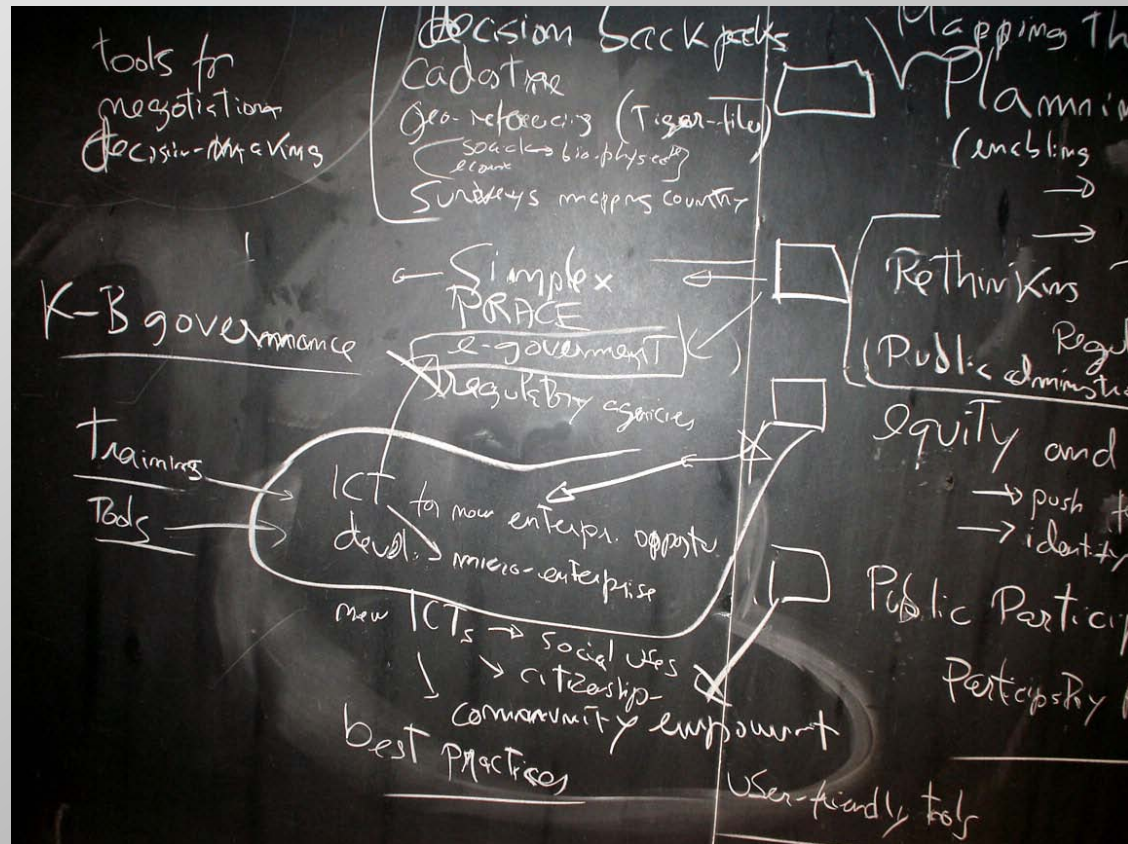 tools for
negotiation
decision-making
decision backpacks
cadastre
geo-referencing (Tiger-files)
bio-physical
surveys mapping country
Simplex
PRACE
e-goverment
regulatory agencies
K-B governance
Training
Tools
ICT for new enterpr. opportu
devel. micro-enterprise
new ICTs → social uses
citizenship
community empowerment
best practices
user-friendly tools
Mapping Th
Plannin
(enabling
Rethinking
Regul
Public administra
equity and
→ push
→ identity
Public Particip